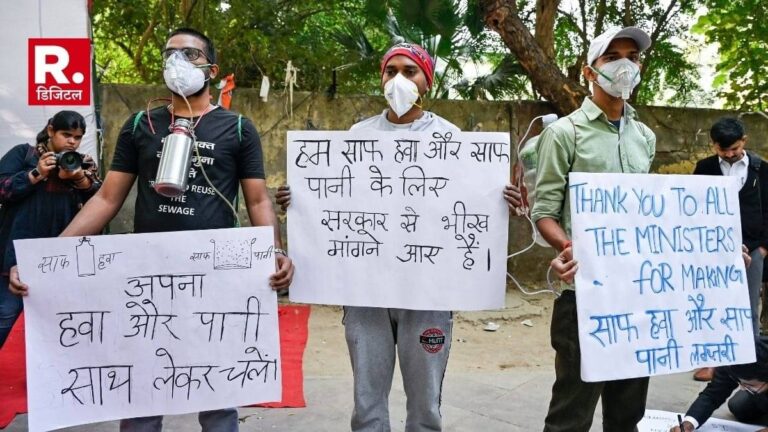 R.
डिजिटल
साफ हवा
साफ पानी
अपना
हवा और पानी
साथ लेकर चलें।
REUSE
THE SEWAGE
हम साफ हवा और साफ
पानी के लिए
सरकार से भीख
मांगने आए हैं।
THANK YOU TO ALL
THE MINISTERS
FOR MAKING
साफ हवा और साफ
पानी लग्जरी